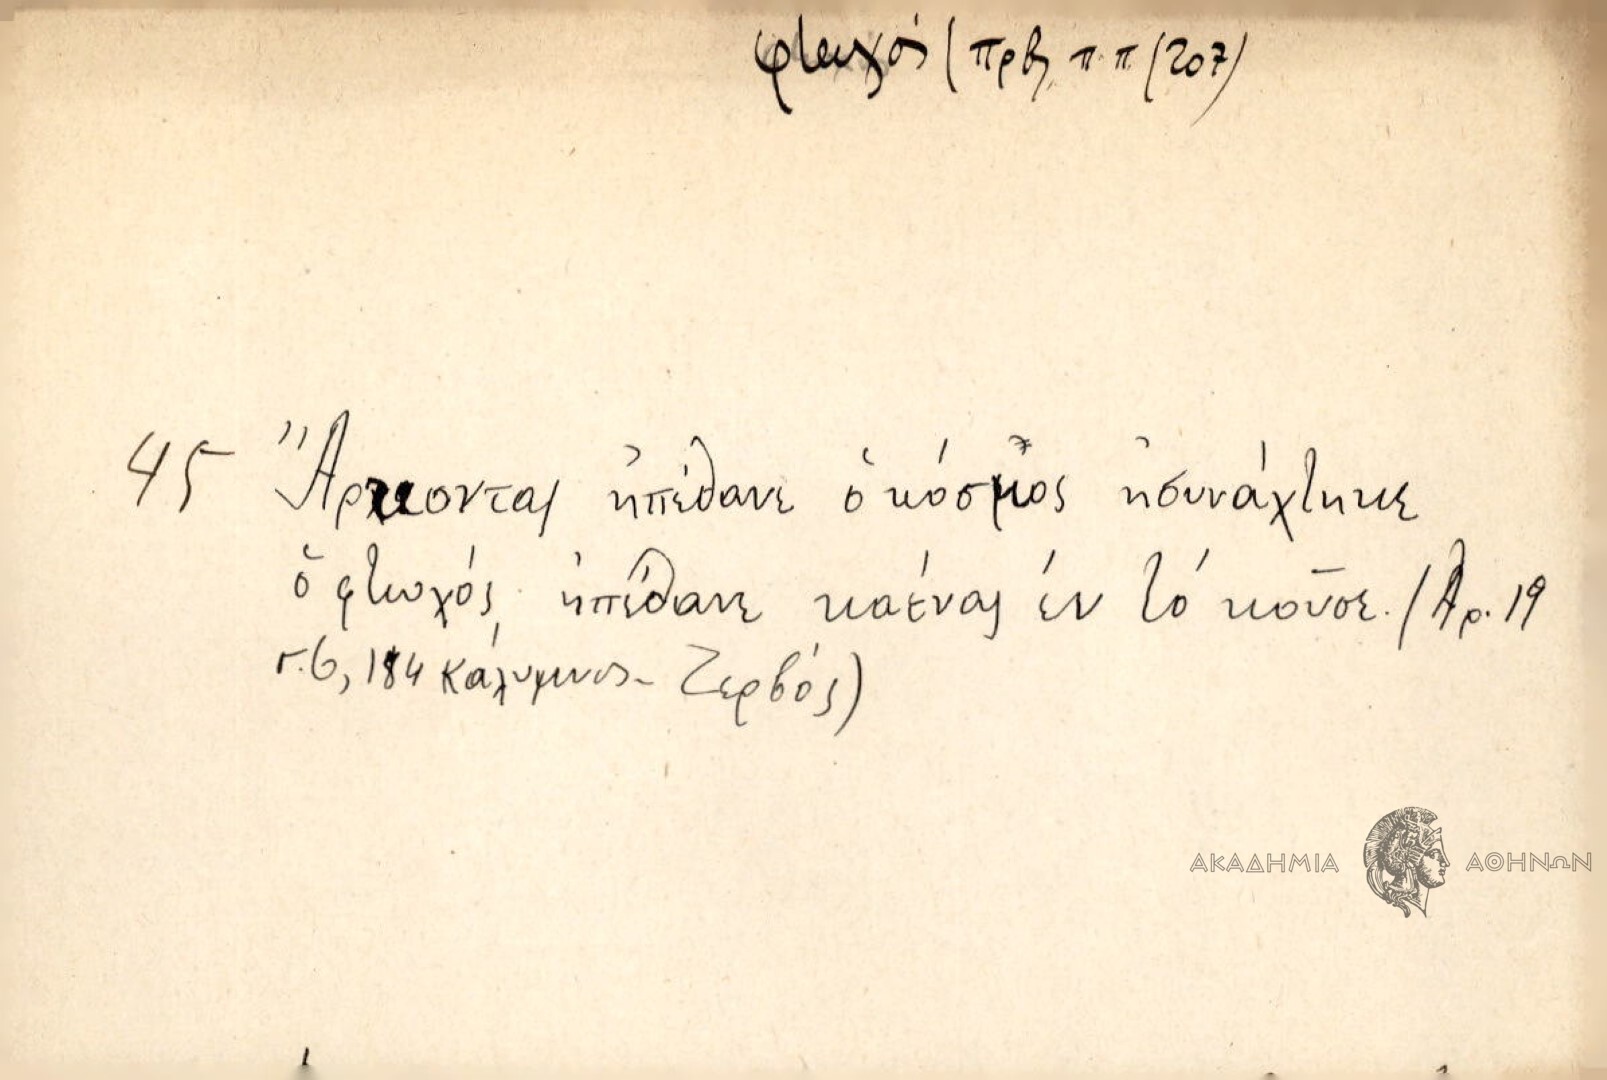 φτωχός (πρβ. π.π (207)
45 Ἄρκοντας ἠπέθανε ὁ κόσμος ἠσυνάχτηκε
ὁ φτωχός ἠπέθανε καένας ἐν τό κοῦσε. (Ἀρ. 19
σ. 6, 184 Κάλυμνος - Ζερβός)
ΑΚΑΔΗΜΙΑ ΑΘΗΝΩΝ